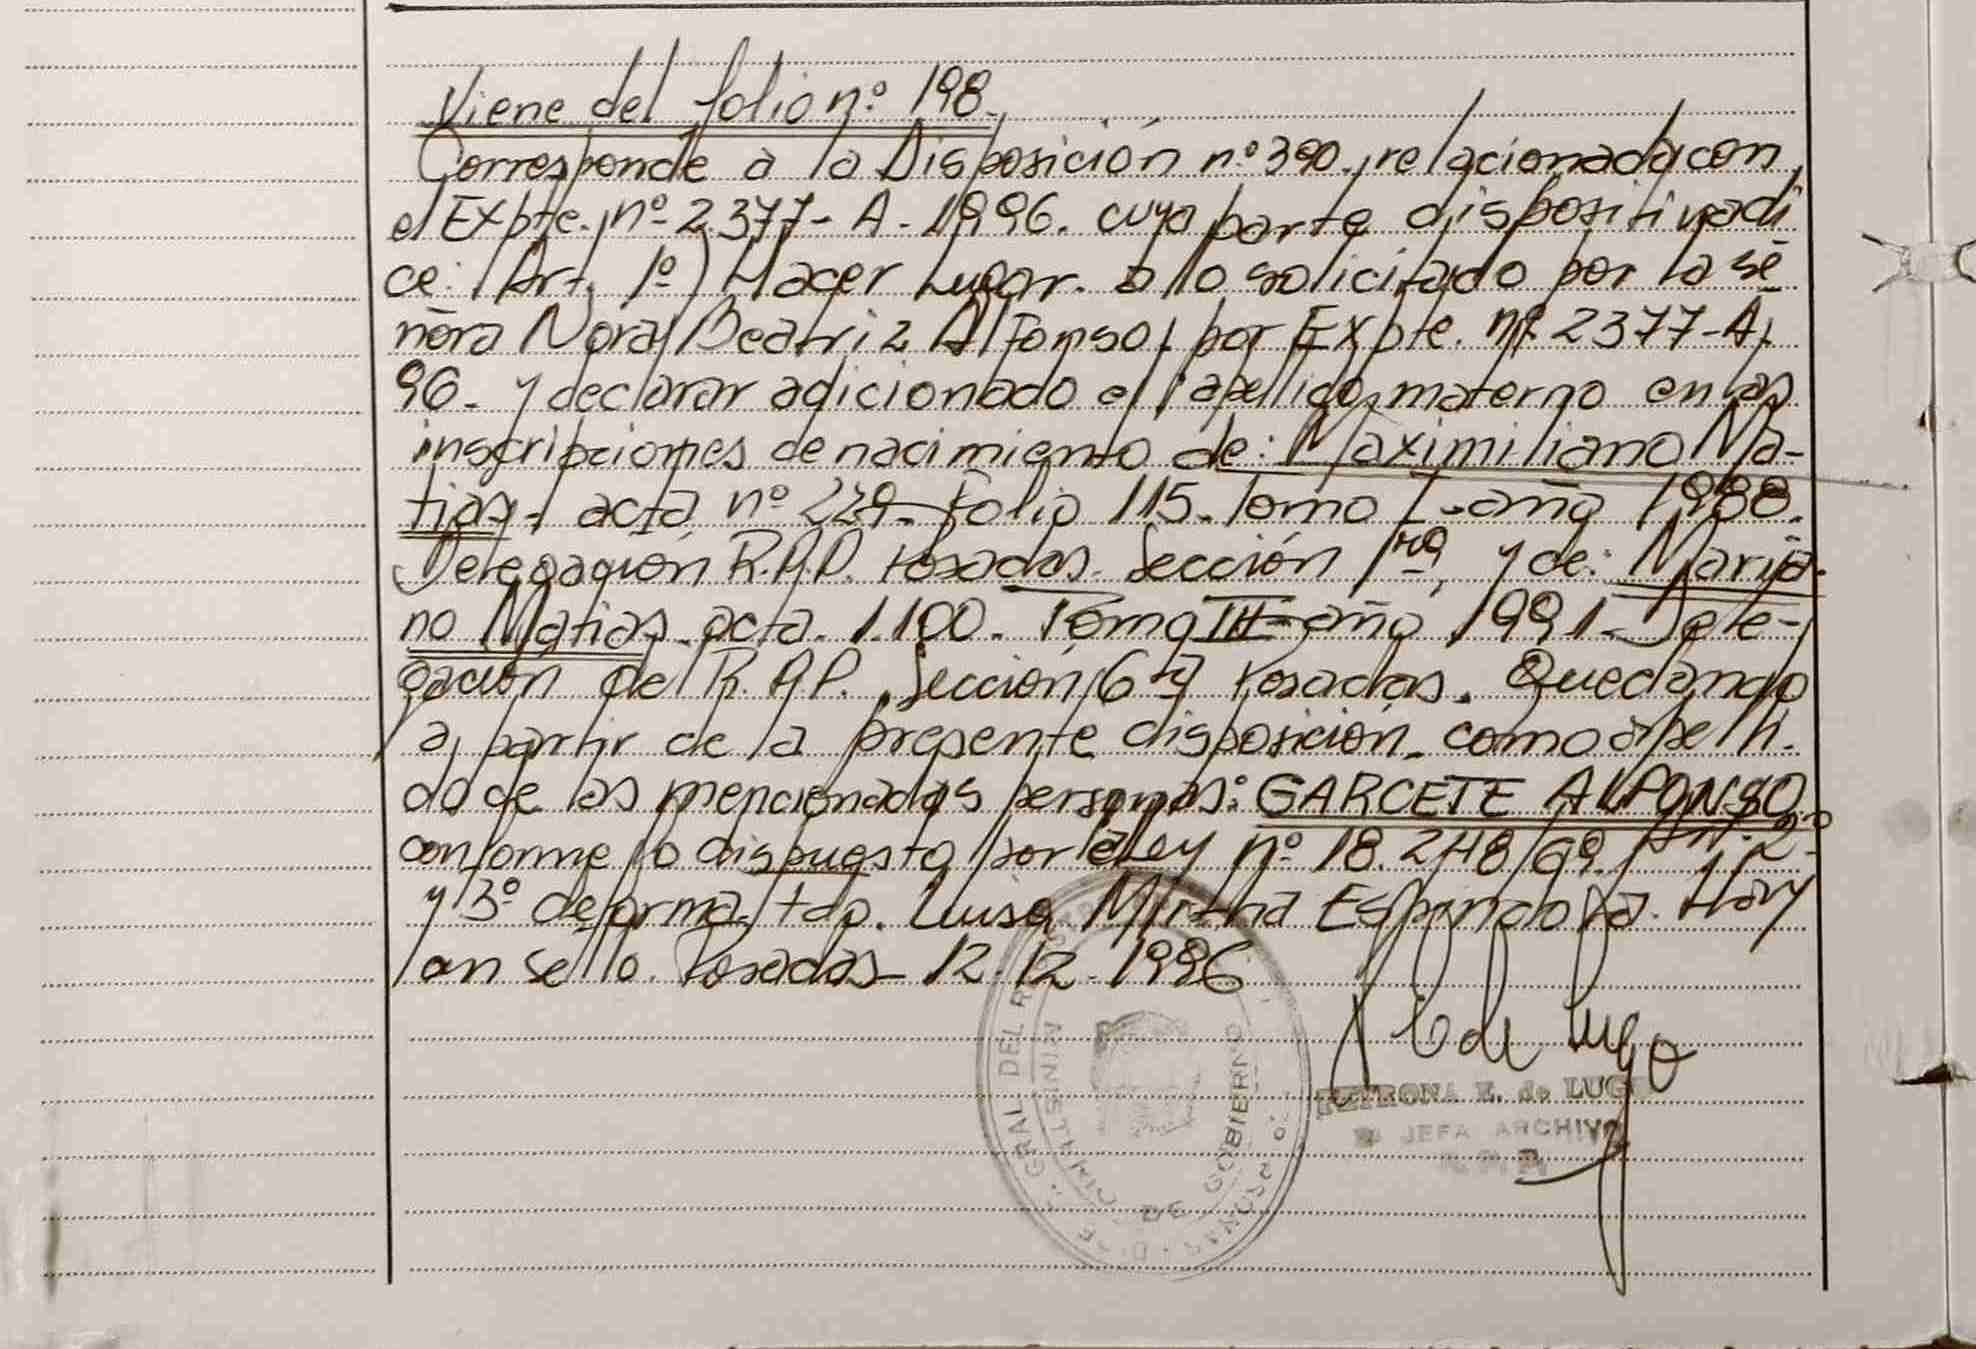 Viene del folio nº 198.
Corresponde a la Disposición nº 390, relacionada con
el Expte. nº 2.377-A-1996. cuya parte dispositiva di
ce: Art. 1º) Hacer Lugar a lo solicitado por la se
ñora Nora Beatriz Alfonso, por Expte. nº 2377-A-
96- y declarar adicionado el apellido materno en las
inscripciones de nacimiento de: Maximiliano Ma-
tias- acta nº 229- Folio 115. Tomo I- año 1988.
Delegación R.P.P. Posadas. Sección 1ra, y de: Maria-
no Matias- acta. 1.100. Tomo III- año 1991- Dele-
gación del R.P.P. Sección 6ta Posadas. Quedando
a partir de la presente disposición. como apelli-
do de las mencionadas personas: GARCETE ALFONSO
conforme lo dispuesto por la Ley nº 18.248/69. Art. 2º
y 3º de forma. Luisa Mirtha Espindola. Hay
un sello. Posadas- 12-12-1996
PETRONA E. de LUGO
JEFA ARCHIVO
R. P. P.
GRAL DEL
MINISTERIO DE GOBIERNO